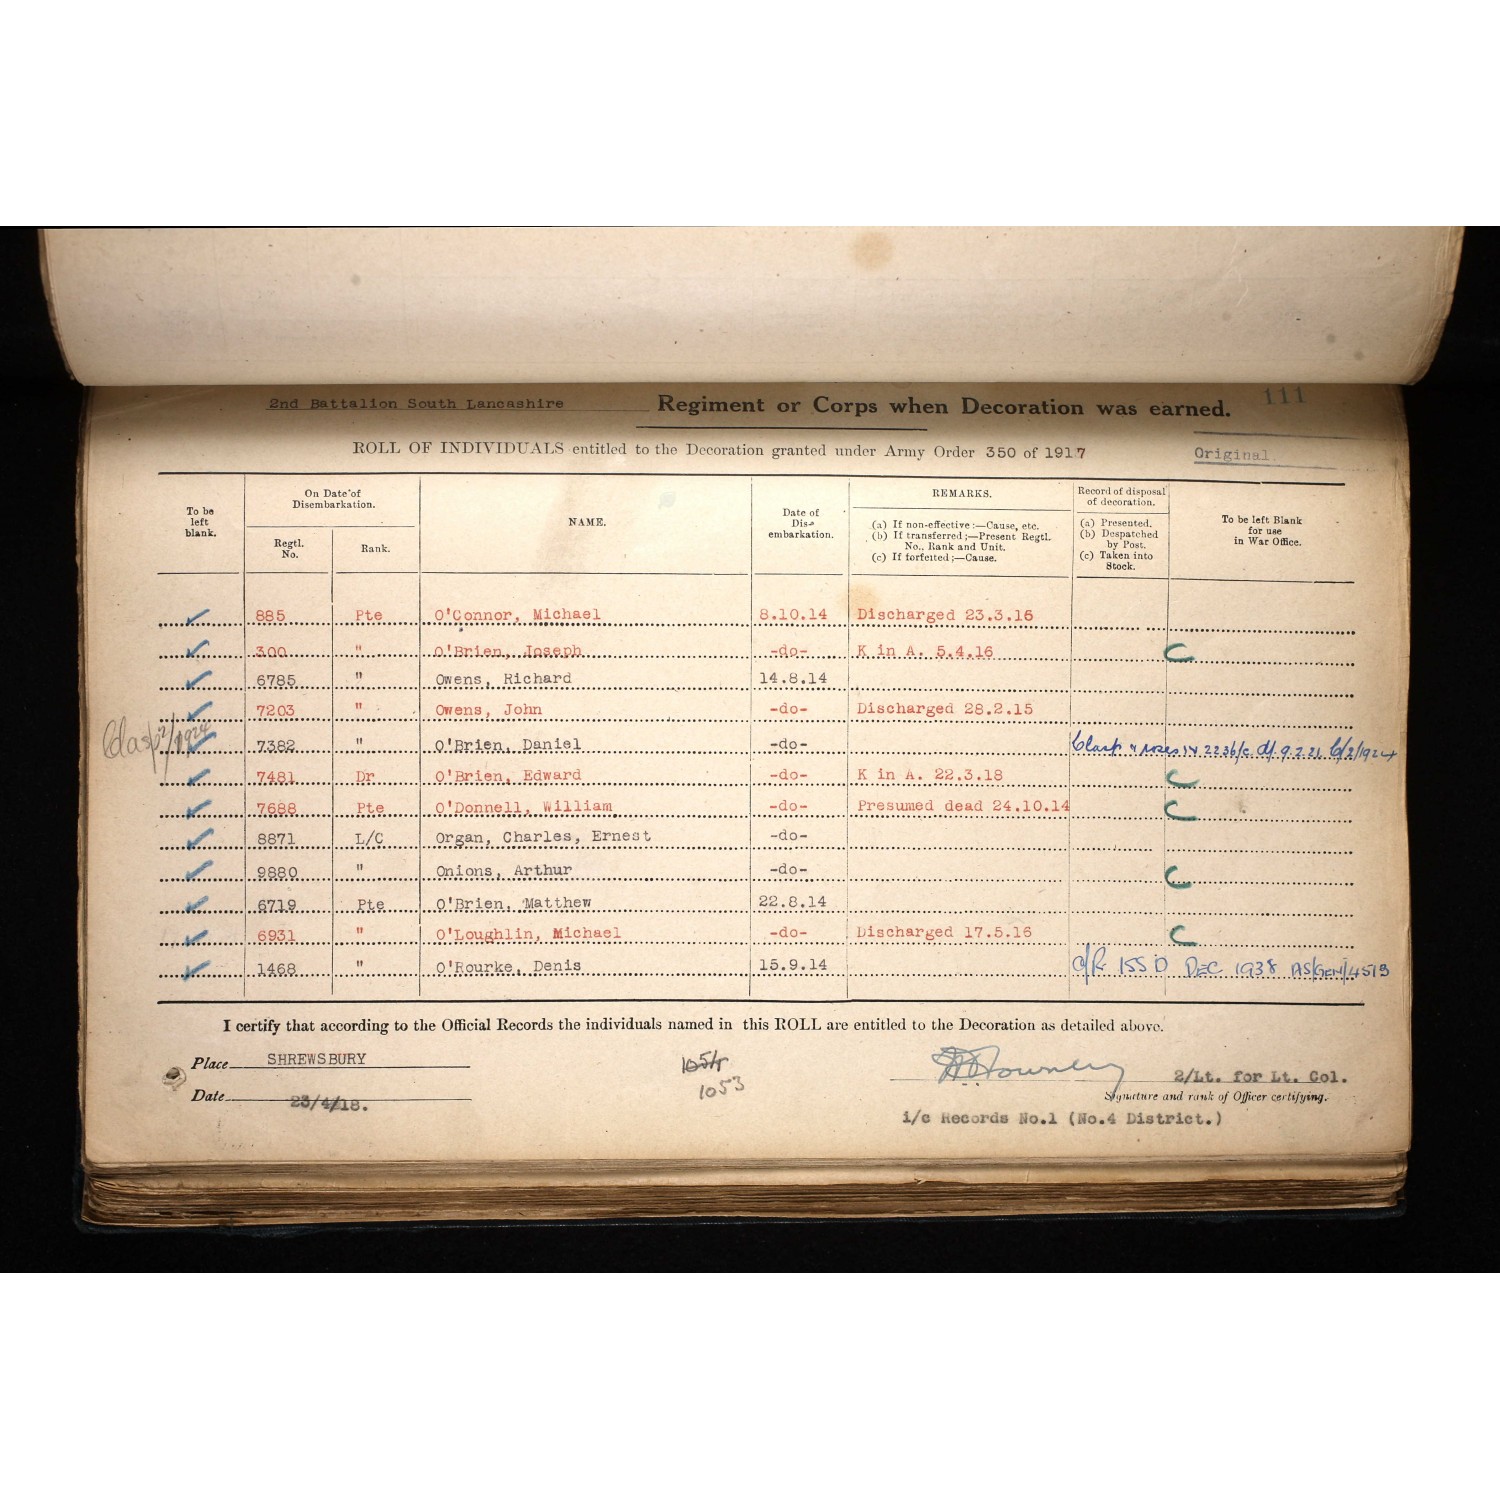 111
2nd Battalion South Lancashire Regiment or Corps when Decoration was earned.
ROLL OF INDIVIDUALS entitled to the Decoration granted under Army Order 350 of 1917 Original
To be left blank.
On Date of Disembarkation.
Regtl. No.
Rank.
NAME.
Date of Dis-embarkation.
REMARKS.
(a) If non-effective :—Cause, etc.
(b) If transferred ;—Present Regtl. No., Rank and Unit.
(c) If forfeited ;—Cause.
Record of disposal of decoration.
(a) Presented.
(b) Despatched by Post.
(c) Taken into Stock.
To be left Blank for use in War Office.
885 Pte O'Connor, Michael 8.10.14 Discharged 23.3.16
300 " O'Brien, Joseph -do- K in A. 5.4.16
6785 " Owens, Richard 14.8.14
7203 " Owens, John -do- Discharged 28.2.15
Clasp 2/1924
7382 " O'Brien, Daniel -do- Clasp & roses 9.2.21 2/1924
7481 Dr O'Brien, Edward -do- K in A. 22.3.18
7688 Pte O'Donnell, William -do- Presumed dead 24.10.14
8871 L/C Organ, Charles, Ernest -do-
9880 " Onions, Arthur -do-
6719 Pte O'Brien, Matthew 22.8.14
6931 " O'Loughlin, Michael -do- Discharged 17.5.16
1468 " O'Rourke, Denis 15.9.14 155 D DEC 1938 AS/GEN/4513
I certify that according to the Official Records the individuals named in this ROLL are entitled to the Decoration as detailed above.
Place SHREWSBURY
Date 23/4/18.
1053
2/Lt. for Lt. Col.
Signature and rank of Officer certifying.
i/c Records No.1 (No.4 District.)